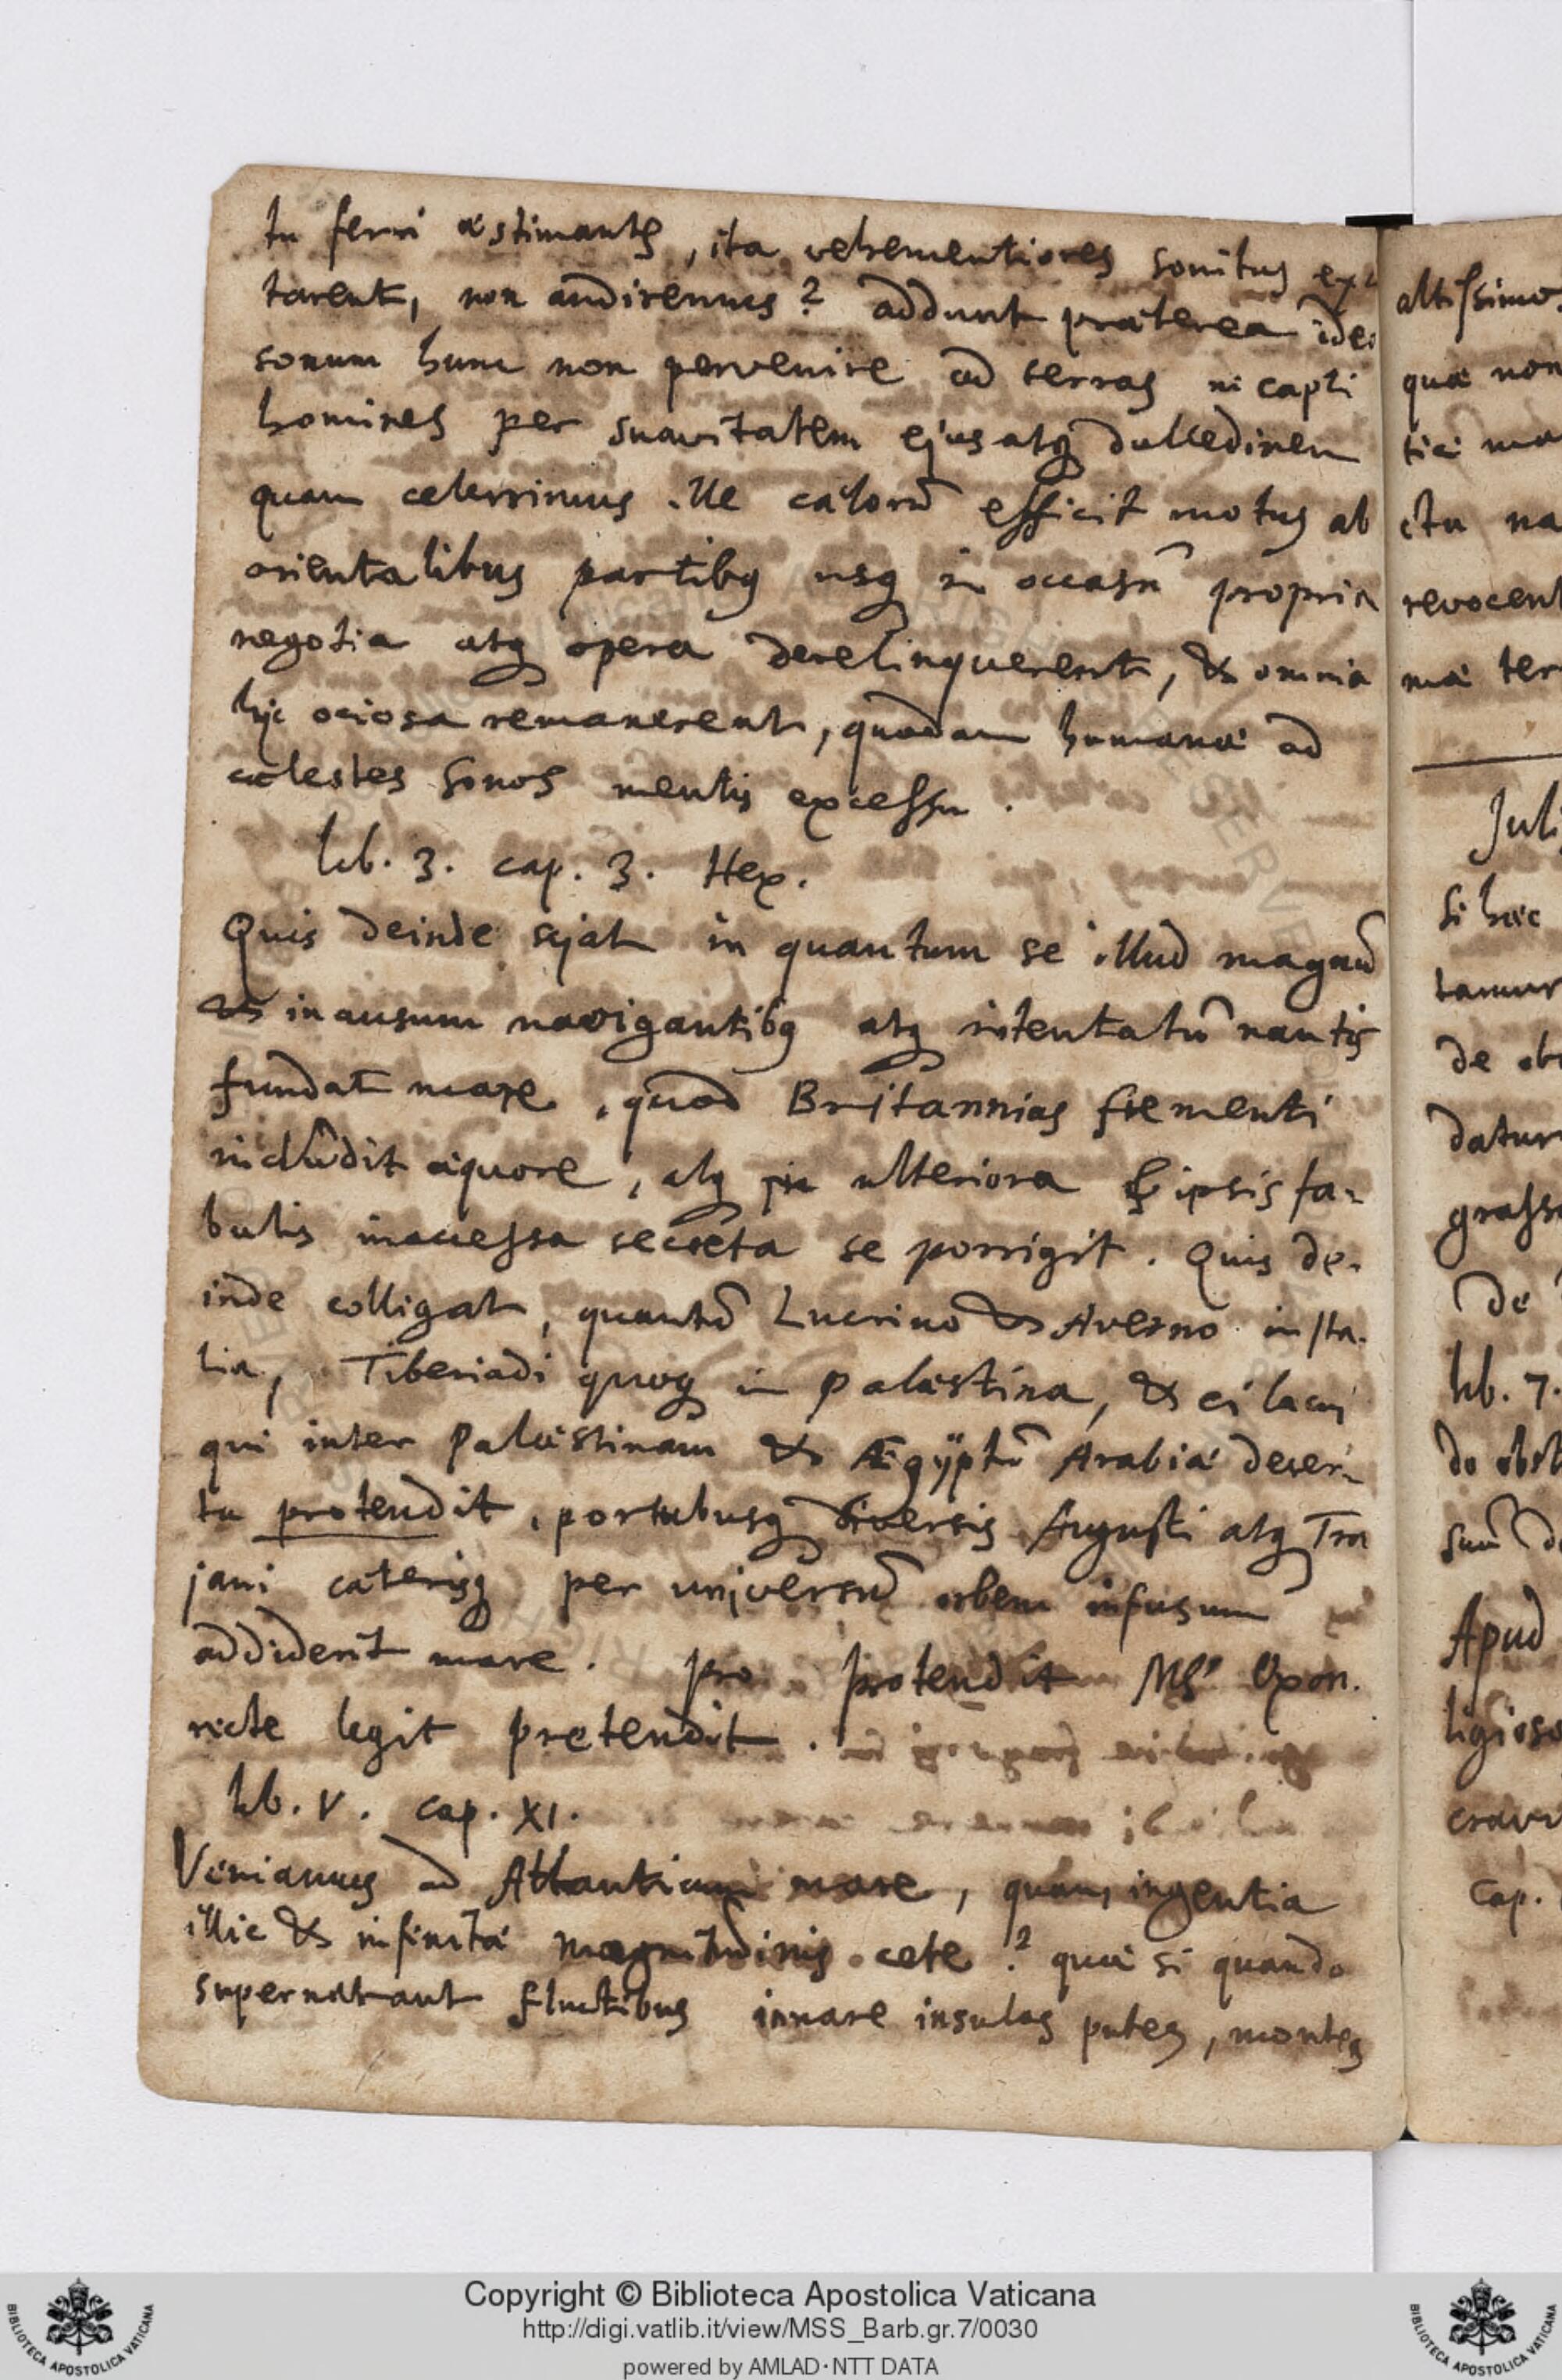 tu ferri æstimantes, ita vehementiores sonitus exci
tarent, non audiremus? addunt præterea ideo
sonum hunc non pervenire ad terras ne capti
homines per suavitatem ejus atq dulcedinem
quam celerrimus ille cælorū efficit motus ab
orientalibus partibq usq in occasū propria
negotia atq opera derelinquerent, & omnia
hic ociosa remanerent, quodam humanæ ad
cælestes sonos mentis excessu.
lib. 3. cap. 3. Hex.
Quis deinde sciat in quantum se illud magnū
& inausum navigantibq atq intentatū nautis
fundat mare, quod Britannias frementi
includit æquore, atq in ulteriora & ipsis fa-
bulis inaccessa secreta se porrigit. Quis de-
inde colligat, quantū Lucrino & Averno in Ita-
lia, Tiberiadi quoq in Palæstina, & ei lacui
qui inter Palæstinam & Ægÿptū Arabiæ deser-
tu protendit, portubusq diversis Augusti atq Tra
jani cæterisq per universū orbem infusum
addiderit mare. pro protendit MSs Oxon.
recte legit pretendit.
lib. V. cap. XI.
Veniamus ad Atlanticum mare, quam ingentia
illic & infinitæ magnitudinis cete? quæ si quando
supernatant fluctibus innare insulas putes, montes
altissimos
quæ non
ctu na
revocent
si hæc
tamur
de
datur
de
lib. 7.
Apud
ligioso
cap.
Copyright © Biblioteca Apostolica Vaticana
http://digi.vatlib.it/view/MSS_Barb.gr.7/0030
powered by AMLAD·NTT DATA
BIBLIOTECA APOSTOLICA VATICANA
BIBLIOTECA APOSTOLICA VATICANA